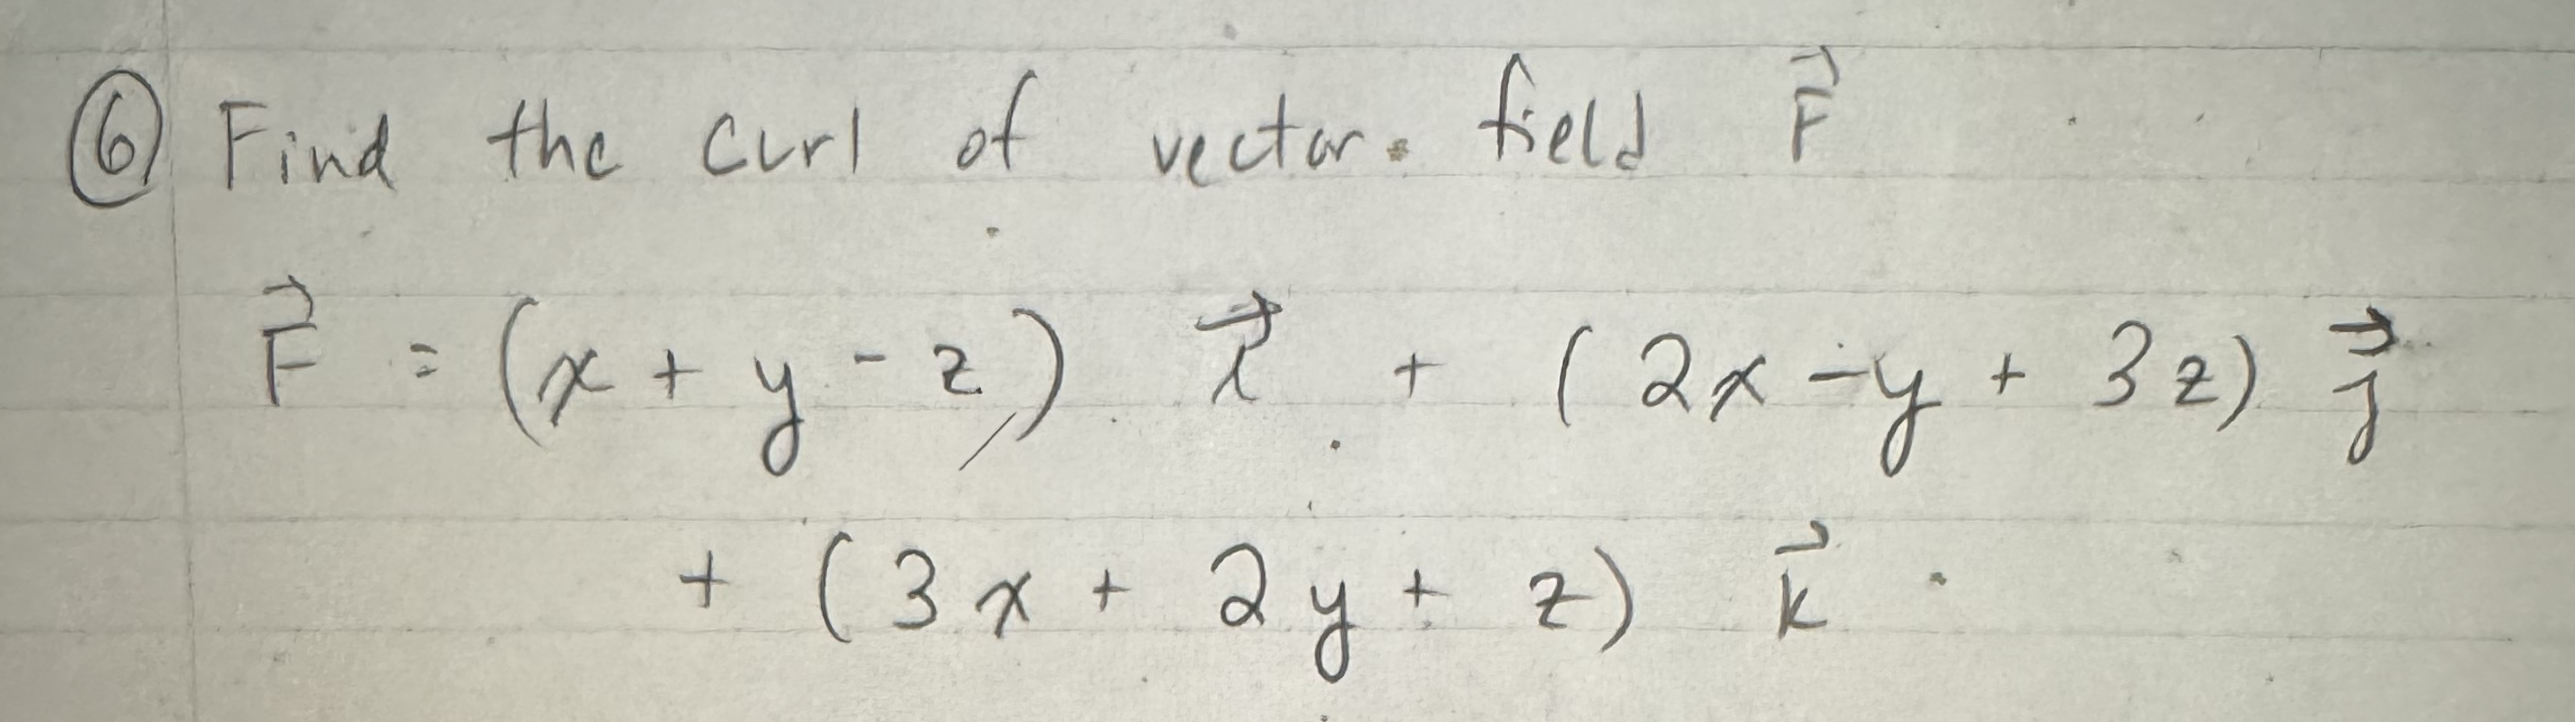 ⑥ Find the curl of vector field F⃗
F⃗ = (x + y - z) i⃗ + (2x - y + 3z) j⃗
+ (3x + 2y + z) k⃗